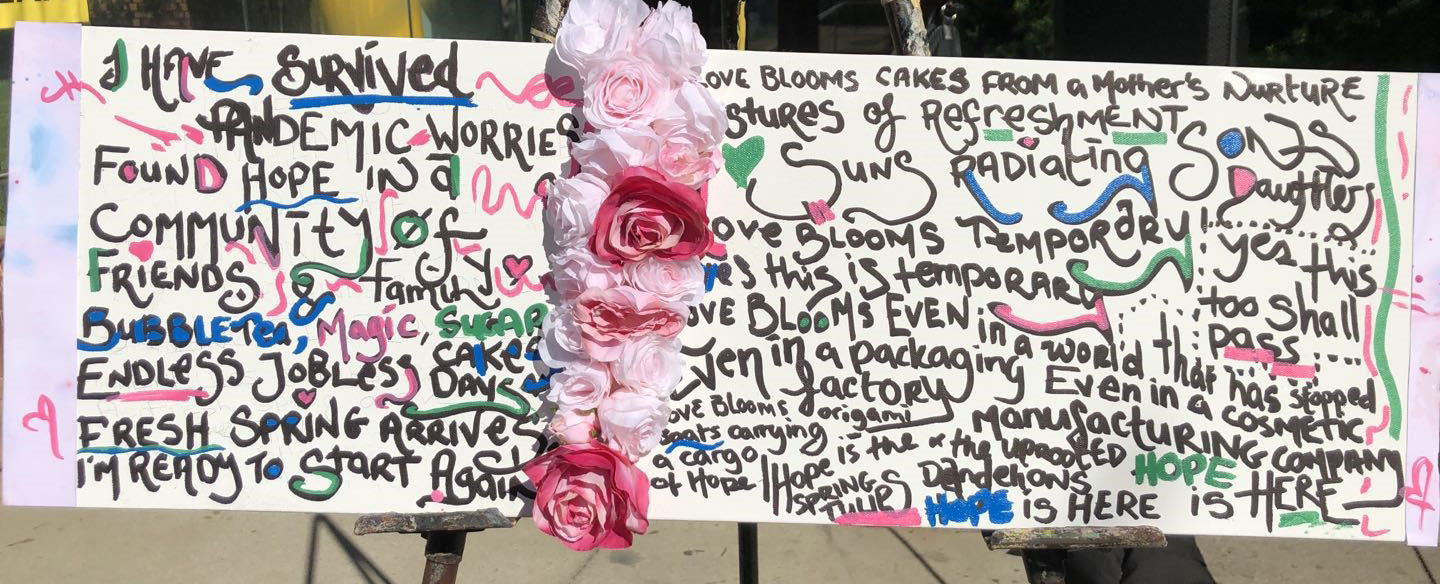 I HAVE SURViVed
PANDEMIC WORRIES
FOUND HOPE IN a
COMMUNITY Of
FRIENDS & family
BUBBLETea, Magic, SUGAR
CaKeS
ENDLESS JOBLeSS DAYS
FRESH SPRING ARRIVES
I'M READY To START Again
LOVE BLOOMS CAKES FROM a MotheR's NURTURE
stures of RefreshMENT
SUNS RADiating SONS
Daughters
LOVE BLOOMS TEMPORaRY!
yes this is temporary
yes this
too shall
pass
LOVE BLOOMS EVEN in a world that has stopped
Even in a packaging
factory
Even in a COSMETIC
ManufactURING COMPANY
LOVE BLOOMS origami
boats carrying
a cargo
of Hope
Hope is the
SPRING
TULIPS
the UPROOTED
Dandelions
HOPE is HERE
HOPE
is HERE